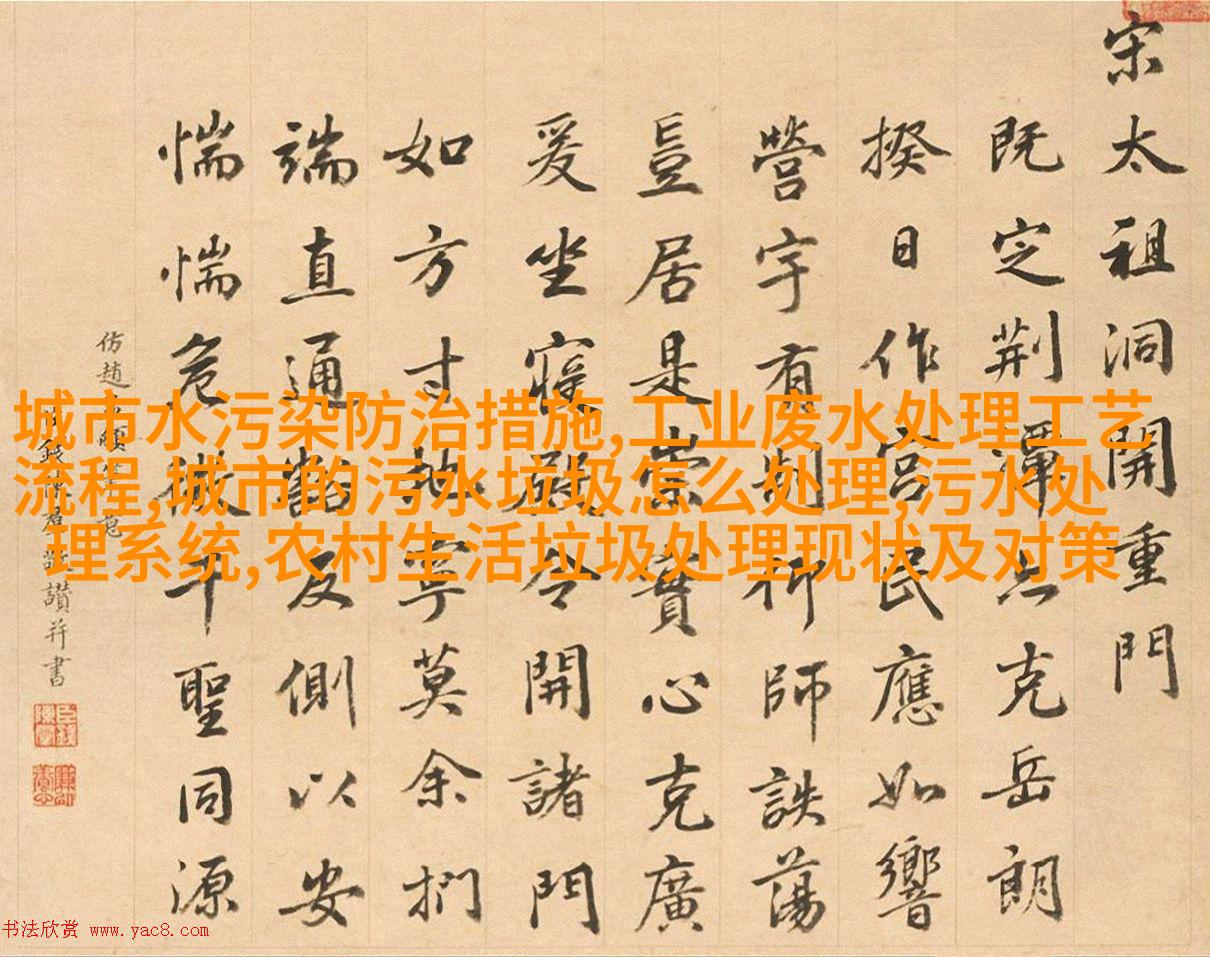 宋太祖洞開重門
既定荆潭亦克岳朗
揆日作宫民應如響
營宇有制師詄蕩
豈居是崇實心克廣
爰坐寝殿令開諸門
如方寸地寧莫余捫
端直通豁及側以安
惴惴危微千聖同源
仿趙
讃并書
城市水污染防治措施,工业废水处理工艺
流程,城市的污水垃圾怎么处理,污水处
理系统,农村生活垃圾处理现状及对策
书法欣赏 www.yac8.com